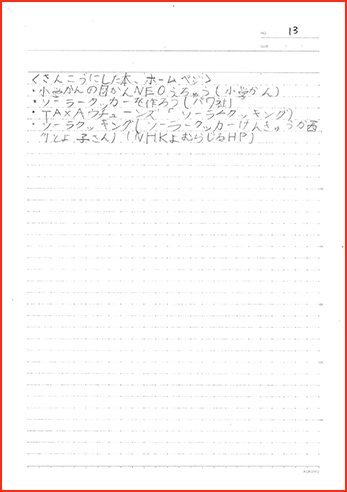 NO. 13
DATE
<さんこうにした本、ホームページ>
・小学かんの図かんNEO (小学かん)
・ソーラークッカーを作ろう(パワ社)
・TAXAウチューンズ「ソーラークッキング)
・ソーラクッキング(ソーラークッカーけんきゅうか西
川とよ子さん)(NHKよむらじるHP)
KOKUYO